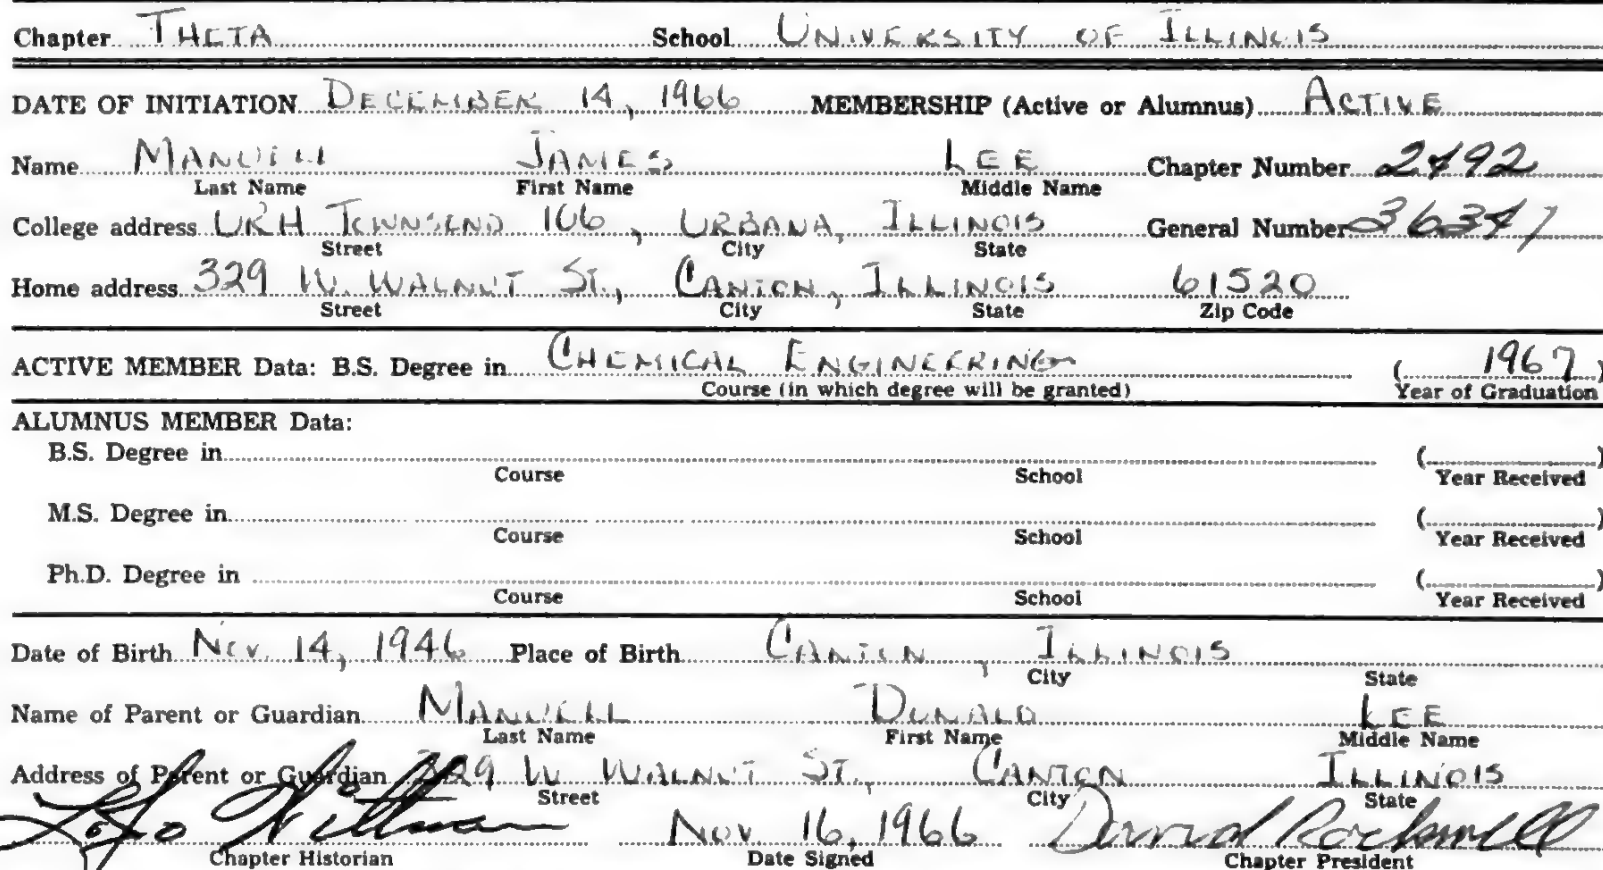 Chapter THETA School UNIVERSITY OF ILLINOIS
DATE OF INITIATION DECEMBER 14, 1966 MEMBERSHIP (Active or Alumnus) ACTIVE
Name MANUELL JAMES LEE Chapter Number 2492
Last Name First Name Middle Name
College address URH TOWNSEND 106, URBANA, ILLINOIS General Number 36347
Street City State
Home address 329 W. WALNUT ST., CANTON, ILLINOIS 61520
Street City State Zip Code
ACTIVE MEMBER Data: B.S. Degree in CHEMICAL ENGINEERING (1967)
Course (in which degree will be granted) Year of Graduation
ALUMNUS MEMBER Data:
B.S. Degree in ()
Course School Year Received
M.S. Degree in ()
Course School Year Received
Ph.D. Degree in ()
Course School Year Received
Date of Birth NOV. 14, 1946 Place of Birth CANTON, ILLINOIS
City State
Name of Parent or Guardian MANUELL DONALD LEE
Last Name First Name Middle Name
Address of Parent or Guardian 329 W WALNUT ST., CANTON ILLINOIS
Street City State
Nov. 16, 1966 David Rockwell
Chapter Historian Date Signed Chapter President